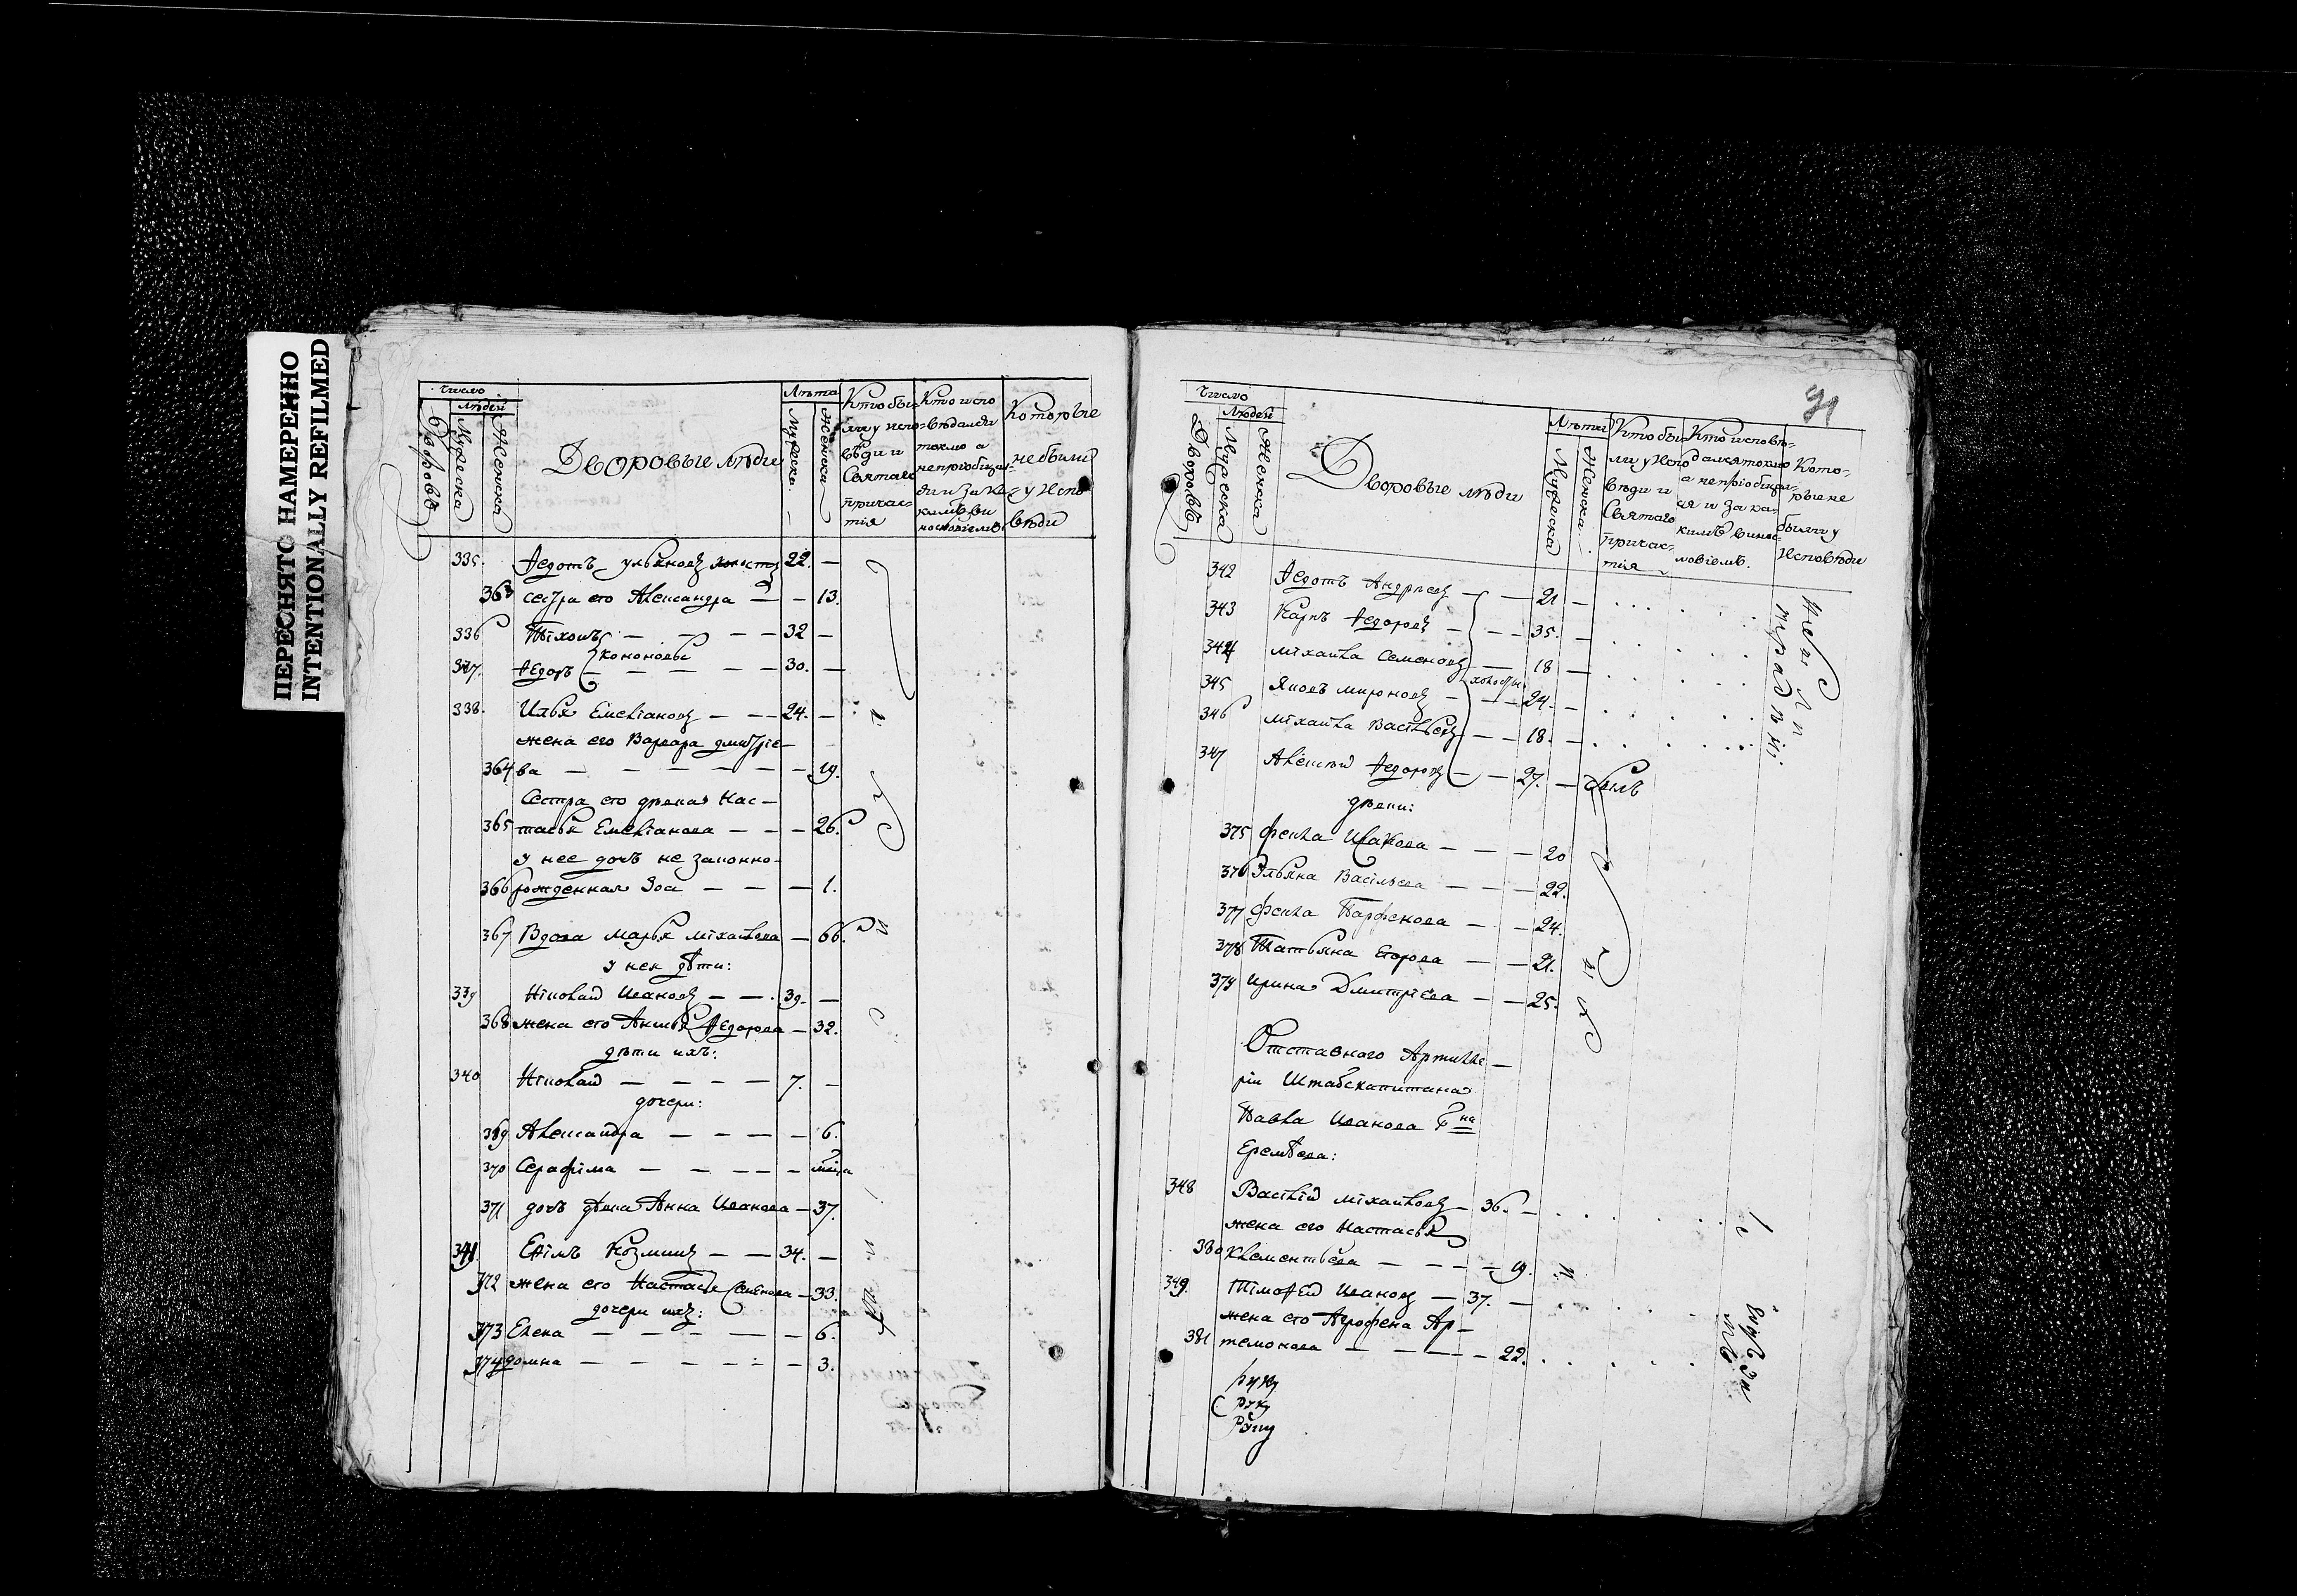 ПЕРЕСНЯТО НАМЕРЕННО
INTENTIONALLY REFILMED
Число
Людей
Дворовъ
Мужеска
Женска
Дворовые люди
Лѣта
Мужеска
Женска
Кто бы-
ли у испо-
вѣди и
Святаго
причас-
тія
Кто испо
вѣдался
токмо а
непріобщил-
ся и за ка-
кимъ ви
нословіемъ
Которые
не были
у испо
вѣди
335. Ѳедотъ Ульяновъ холостъ 22. —
363 сестра его Александра — — 13.
336 Тіхонъ — — — 32 —
Кононовы
337. Ѳедоръ — — — — 30. —
338. Илья Емеліановъ — — 24. —
жена его Варвара Дмитріе-
364 ва — — — — — — 19.
Сестра его дѣвка Нас-
365 тасья Емеліанова — — — 26.
у нее дочь не законно-
366 рожденная Зоа — — — 1.
367 Вдова Марья Міхаилова — 66.
у нея дѣти:
339 Ніколай Ивановъ — — 39. —
368 жена его Анисья Ѳедорова — 32.
дѣти ихъ:
340 Ніколай — — — — 7. —
дочери:
369 Александра — — — — 6.
370 Серафіма — — — —
371 дочь дѣвка Анна Иванова — 37.
341 Ефімъ Козминъ — — 34. —
372 жена его Настасья Семенова — 33.
дочери ихъ:
373 Елена — — — — — 6.
374 Домна — — — — — 3.
Число
Людей
Дворовъ
Мужеска
Женска
Дворовые люди
Лѣта
Мужеска
Женска
Кто бы-
ли у испо
вѣди и
Святаго
причас-
тія
Кто исповѣ-
дался токмо
а непріобщил-
ся и за ка-
кимъ винос-
ловіемъ.
Кото-
рые не
были у
исповѣди
342 Ѳедотъ Андреевъ — — 21 —
343 Карпъ Ѳедоровъ — — — 35. —
344 Міхаила Семеновъ — 18 —
холосты
345 Яковъ Міроновъ — — — 24. —
346 Міхаила Васільевъ — — 18. —
347 Алексѣй Ѳедоровъ — — 27. — былъ
дѣвки:
375 Фекла Иванова — — — 20
376 Ульяна Васільева — — — 22.
377 Фекла Парфенова — — 24.
378 Татьяна Егорова — — 21.
379 Ирина Дмитріева — — 25.
Отставного Артилле-
ріи Штабскапитана
Павла Иванова
Еремѣева:
348 Васілій Міхаиловъ — 36. —
жена его Настасья
380 Клементьева — — — — 19.
349. Тімоѳей Ивановъ — 37. —
жена его Агрофена Ар-
381 темонова — — — — 22.